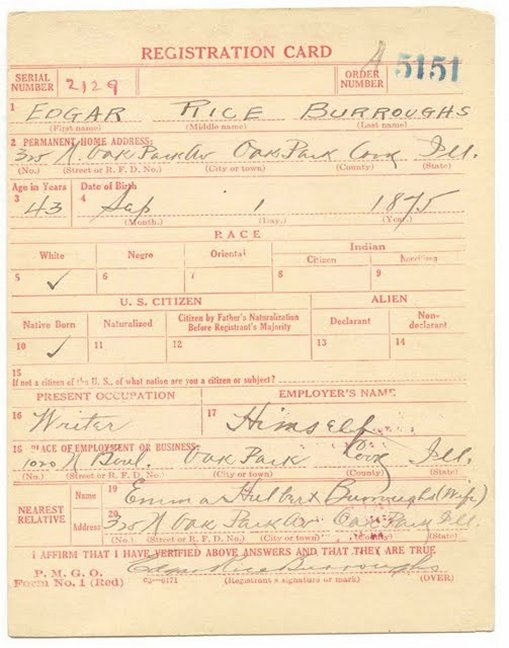 REGISTRATION CARD
SERIAL NUMBER 2129 ORDER NUMBER A 5151
1 EDGAR RICE BURROUGHS
(First name) (Middle name) (Last name)
2 PERMANENT HOME ADDRESS:
325 N. Oak Park Av Oak Park Cook Ill.
(No.) (Street or R. F. D. No.) (City or town) (County) (State)
Age in Years Date of Birth
3 43 4 Sep 1 1875
(Month.) (Day.) (Year.)
RACE
White Negro Oriental Indian
Citizen Noncitizen
5 ✓ 6 7 8 9
U. S. CITIZEN ALIEN
Native Born Naturalized Citizen by Father's Naturalization Before Registrant's Majority Declarant Non-declarant
10 ✓ 11 12 13 14
15
If not a citizen of the U. S., of what nation are you a citizen or subject?
PRESENT OCCUPATION EMPLOYER'S NAME
16 Writer 17 Himself
18 PLACE OF EMPLOYMENT OR BUSINESS:
1020 N Boul. Oak Park Cook Ill.
(No.) (Street or R. F. D. No.) (City or town) (County) (State)
NEAREST RELATIVE Name 19 Emma Hulbert Burroughs (Wife)
Address 20 325 N Oak Park Av Oak Park Ill.
(No.) (Street or R. F. D. No.) (City or town) (County) (State)
I AFFIRM THAT I HAVE VERIFIED ABOVE ANSWERS AND THAT THEY ARE TRUE
P. M. G. O. Edgar Rice Burroughs
Form No. 1 (Red) 03—6171 (Registrant's signature or mark) (OVER)